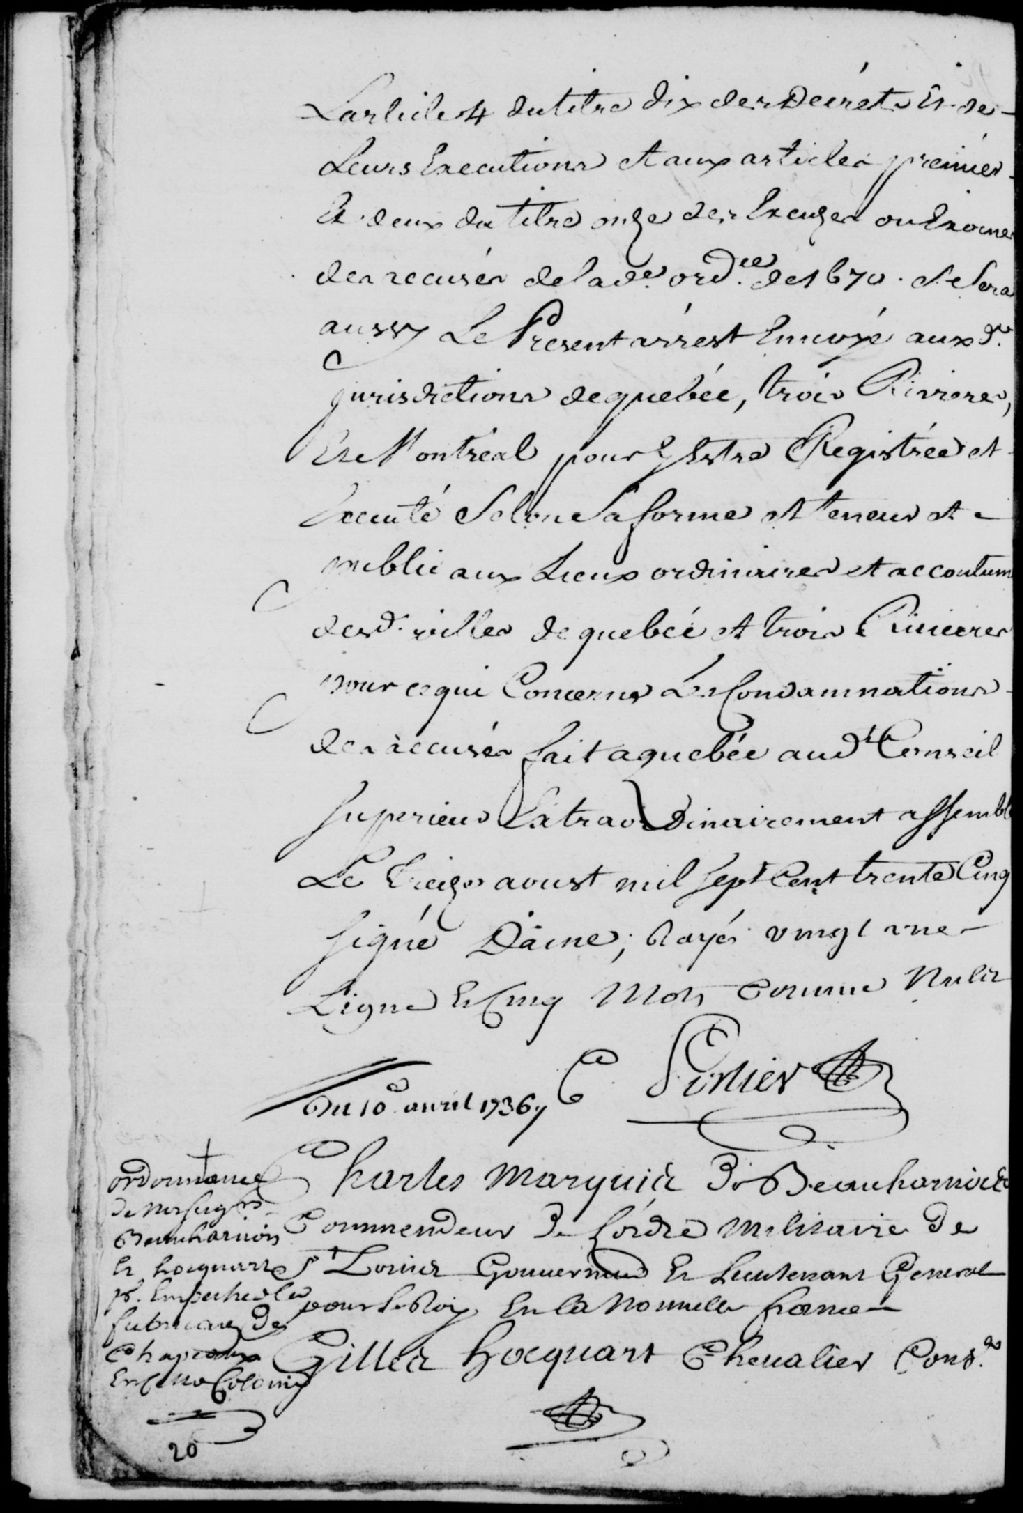 L'article 4 du titre dix des Décrets Et de
Leurs Executions et aux articles premier
Et deux du titre onze des Excuzes ou Exoines
des accusés de lad.e ord.ce de 1670. et Sera
aussy Le Present arrest Envoyé aux d.
Jurisdictions de quebéc, trois Rivieres,
Et Montréal pour y Estre Registrée et
Executé Selon Sa forme et teneur et
publié aux Lieux ordinaires et accoutum
desd. villes de quebéc et trois Rivieres
pour ce qui Concerne Les Condamnations
des accusés fait a quebéc aud.t Conseil
Superieur Extraordinairement assemblé
Le Treize aoust mil Sept Cent trente Cinq
Signé Daine; Rayés vingt une
Ligne Et Cinq Mots Comme Nuls
Du 10 avril 1736
ordonnance
de Nosseigrs
Beauharnois
Et hocquart
pr. Empecher la
fabrique de
Chapeaux
En Cette Colonie
20
Charles Marquis De Beauharnois
Commendeur De L'ordre Militaire De
St Louis Gouverneur Et Lieutenant General
pour Le Roy En la Nouvelle france
Gilles hocquart Chevalier Cons.er